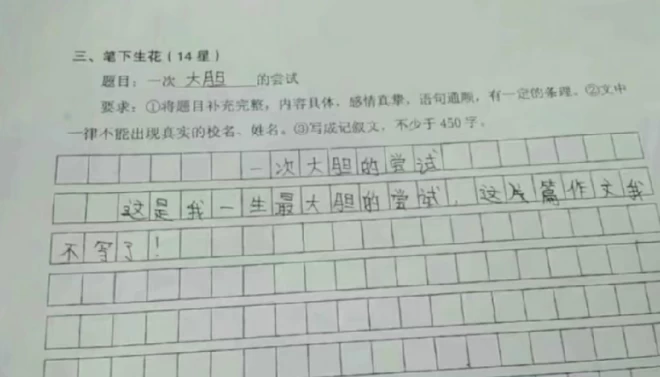 三、笔下生花(14星)
题目:一次 大胆 的尝试
要求:①将题目补充完整,内容具体,感情真挚,语句通顺,有一定的条理。②文中
一律不能出现真实的校名、姓名。③写成记叙文,不少于450字。
一次大胆的尝试
这是我一生最大胆的尝试,这篇作文我
不等了!